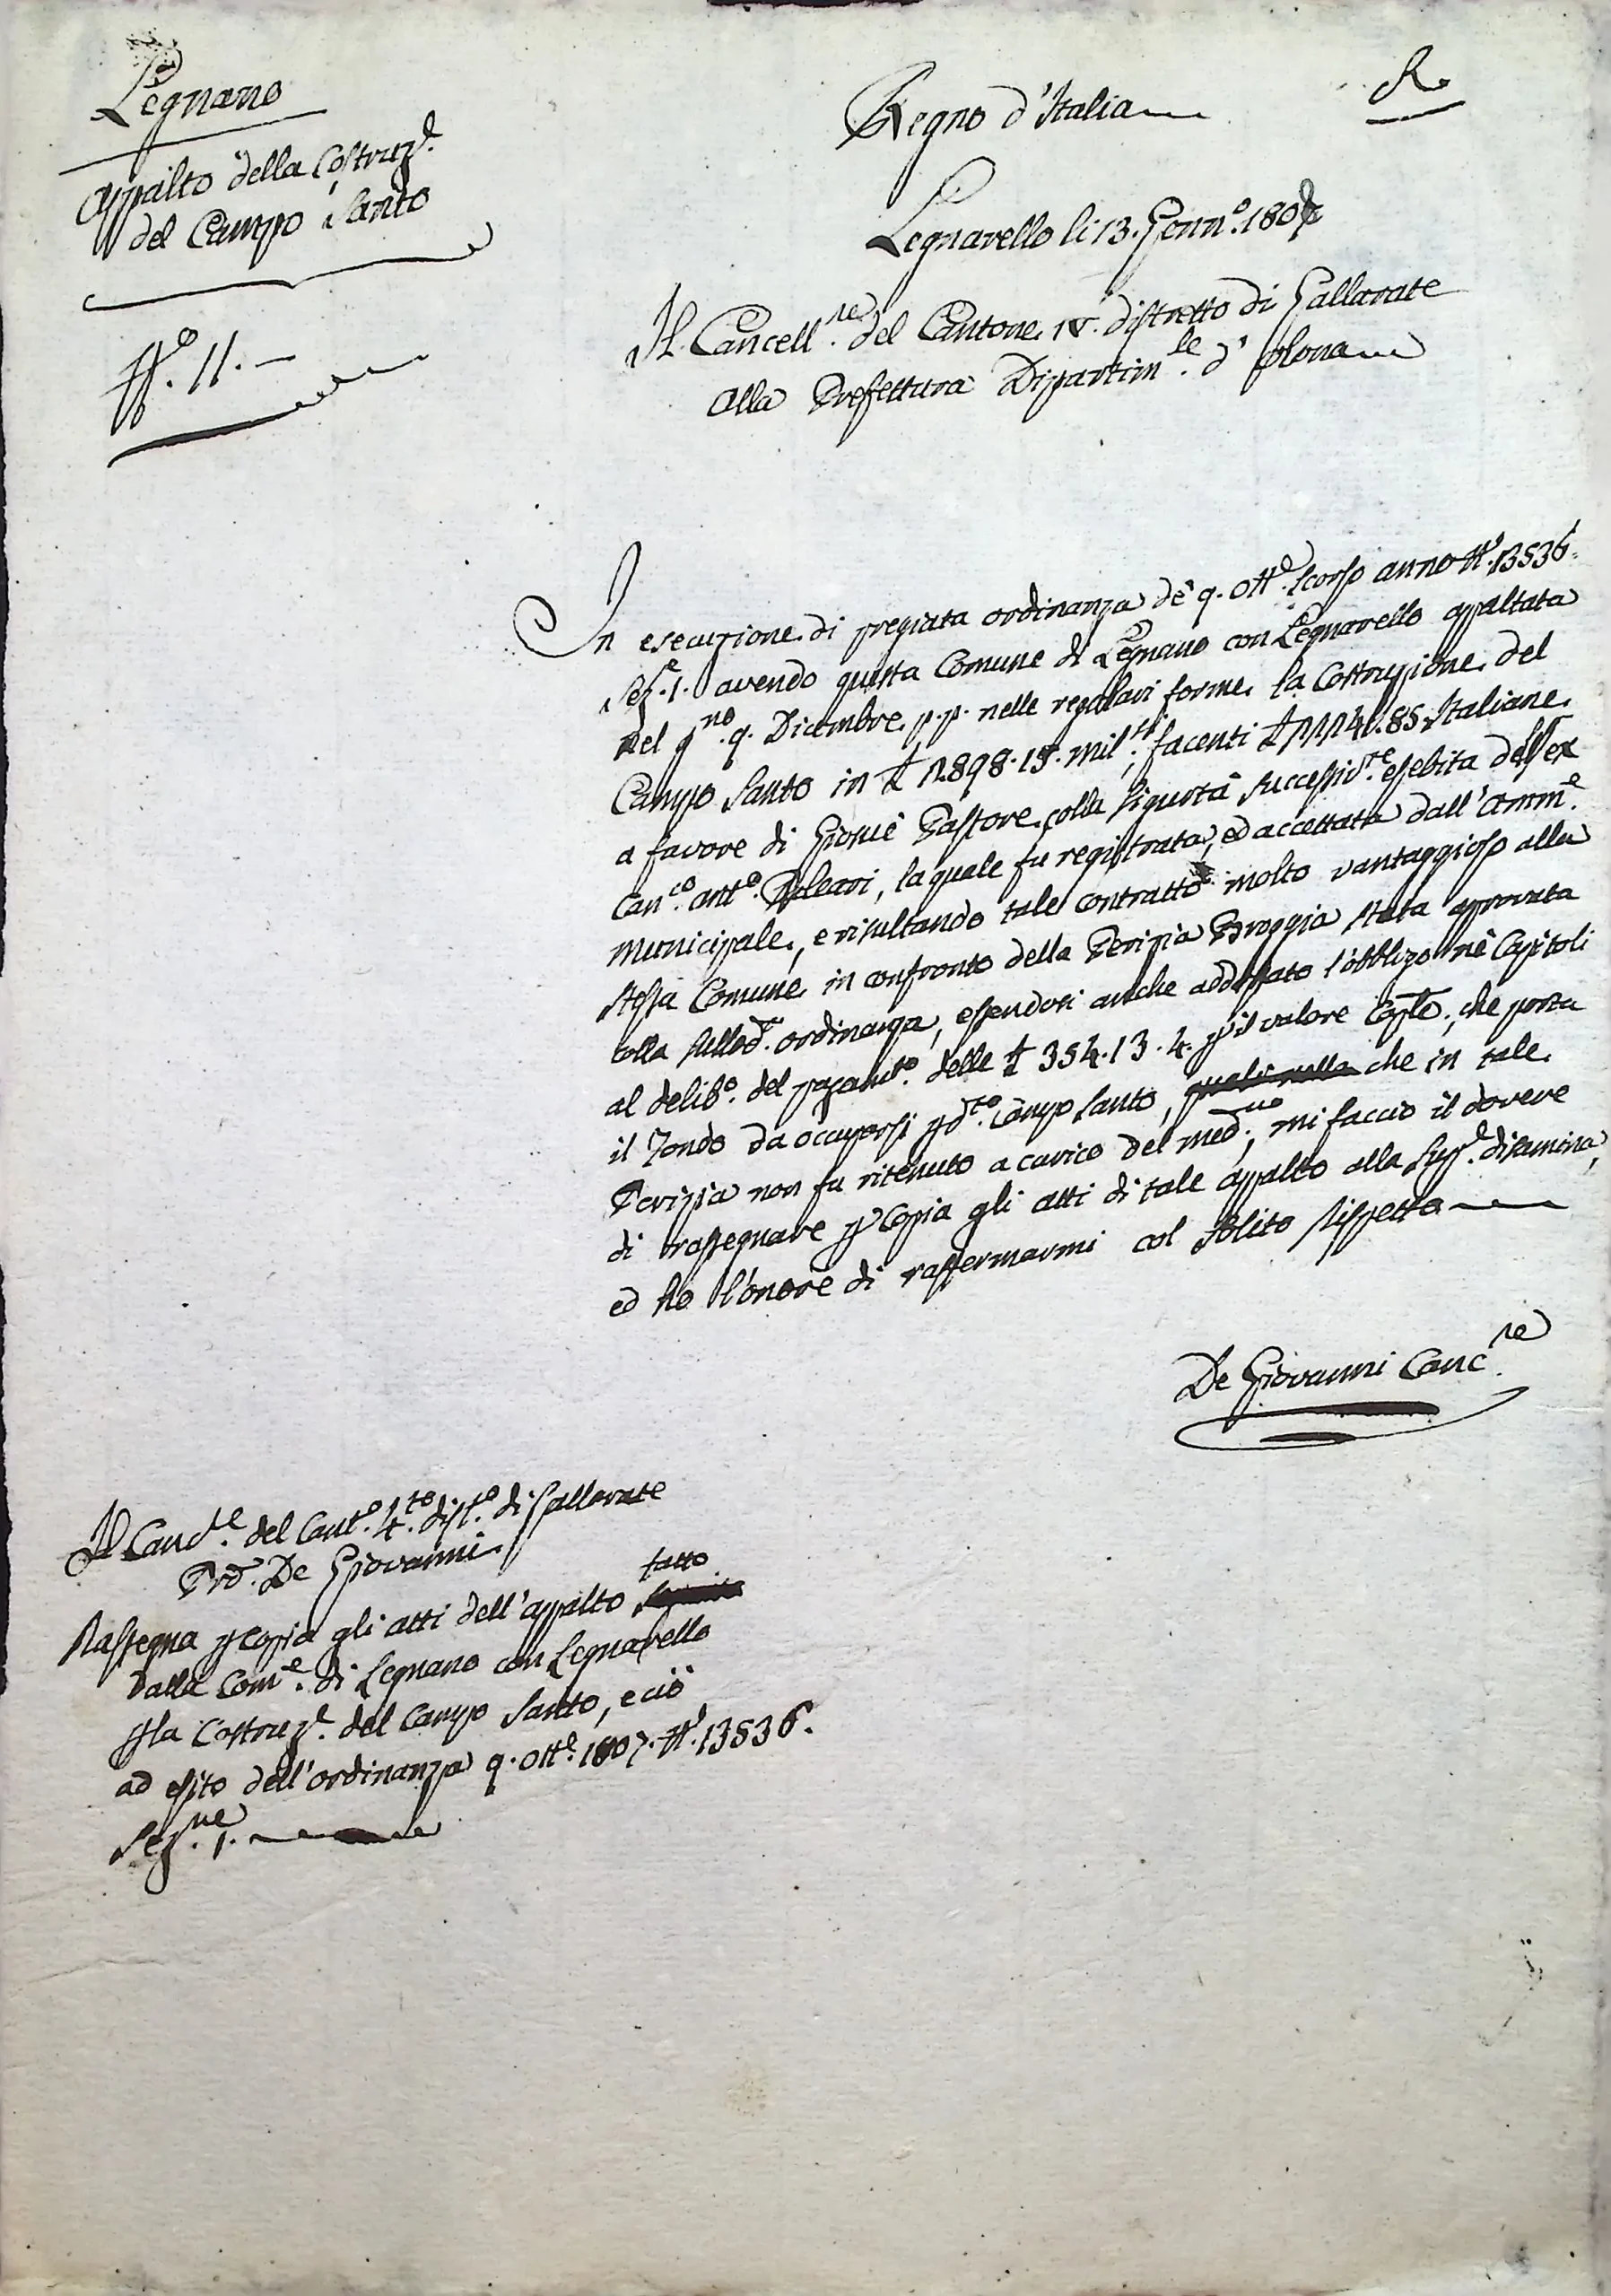 Legnano
Appalto della Costruz.e
del Campo Santo
N.o 11.
R.
Regno d'Italia
Legnarello li 13. Genn.o 1808
Il Cancell.re del Cantone IV. distretto di Gallarate
Alla Prefettura Dipartim.le d'Olona
In esecuzione di pregiata ordinanza de' 9. Ott.e scorso anno N.o 13536.
Sez.e 1. avendo questa Comune di Legnano con Legnarello appaltata
nel g.no 9. Dicembre p.p. nelle regolari forme la Costruzione del
Campo Santo in £ 2898.15. mil.si, facenti £ 2224.85 Italiane
a favore di Giosuè Pastore, colla sigurtà successiv.te esebita dell'ex
Can.co Ant.o Paleari, la quale fu registrata, ed accettata dall'Amm.e
Municipale, e risultando tale contratto molto vantaggioso alla
stessa Comune in confronto della Perizia Broggia stata approvata
colla sullod.a ordinanza, essendosi anche addossato l'obbligo nè Capitoli
al delib.o del pagam.to delle £ 354.13.4. p il valore Cap.le, che porta
il Fondo da occuparsi p d.to Campo Santo, che in tale
Perizia non fu ritenuto a carico del med.mo, mi faccio il dovere
di rassegnare p Copia gli atti di tale appalto alla Sup.e disamina,
ed ho l'onore di raffermarmi col solito rispetto
De Giovanni Canc.re
Il Canc.re del Cant.o 4.to dist.o di Gallarate
Pro. De Giovanni
Rassegna p copia gli atti dell'appalto fatto
dalla Com.e di Legnano con Legnarello
p la Costruz.e del Campo Santo, e ciò
ad esito dell'ordinanza 9. Ott.e 1807. N.o 13536.
Sez.ne 1.